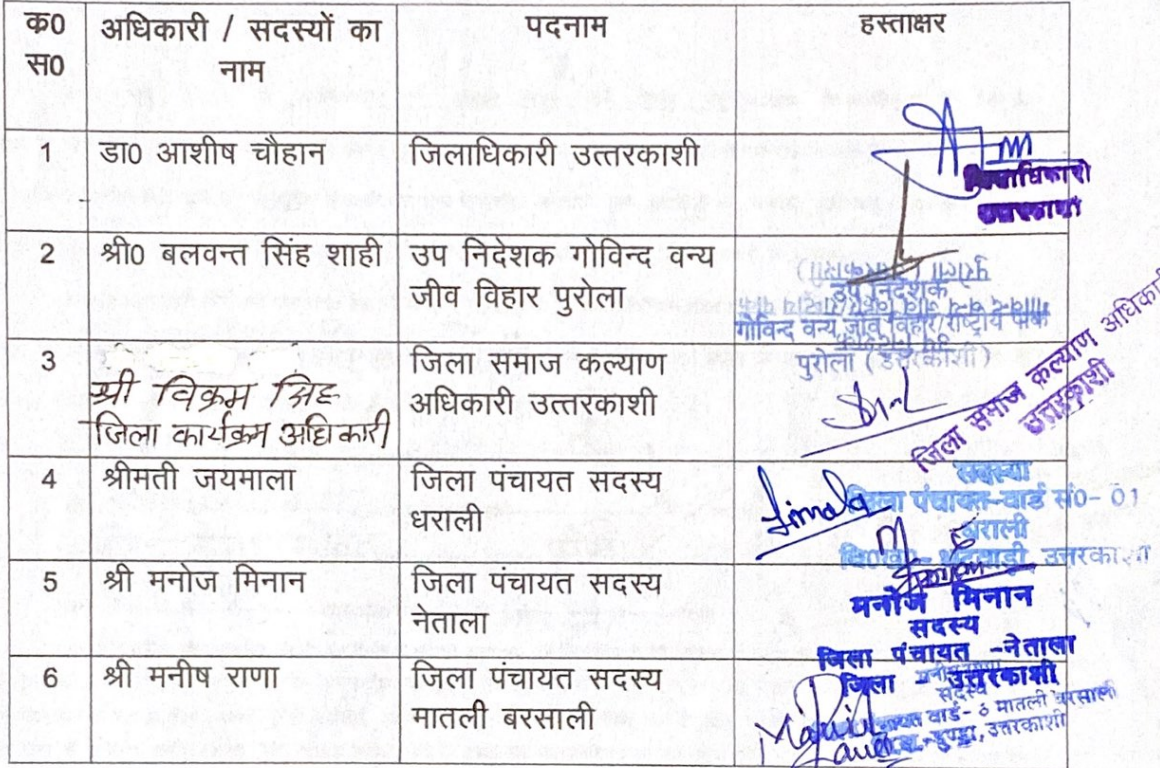 क0 स0
अधिकारी / सदस्यों का नाम
पदनाम
हस्ताक्षर
1
डा0 आशीष चौहान
जिलाधिकारी उत्तरकाशी
जिलाधिकारी
उत्तरकाशी
2
श्री0 बलवन्त सिंह शाही
उप निदेशक गोविन्द वन्य
जीव विहार पुरोला
उप निदेशक
गोविन्द वन्य जीव विहार/राष्ट्रीय पार्क
पुरोला (उत्तरकाशी)
3
श्री विक्रम सिंह
जिला कार्यक्रम अधिकारी
जिला समाज कल्याण
अधिकारी उत्तरकाशी
जिला समाज कल्याण अधिकारी
उत्तरकाशी
4
श्रीमती जयमाला
जिला पंचायत सदस्य
धराली
सदस्या
जिला पंचायत-वार्ड सं0- 01
धराली
वि0ख0- भटवाड़ी, उत्तरकाशी
5
श्री मनोज मिनान
जिला पंचायत सदस्य
नेताला
मनोज मिनान
सदस्य
जिला पंचायत -नेताला
जिला उत्तरकाशी
6
श्री मनीष राणा
जिला पंचायत सदस्य
मातली बरसाली
मनीष राणा
सदस्य
पंचायत वार्ड- मातली बरसाली
डुण्डा, उत्तरकाशी